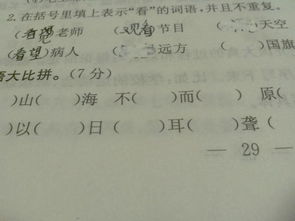 2. 在括号里填上表示“看”的词语，并且不重复。
(        )老师 (观看)节目 (        )天空
(看望)病人 (        )远方 (        )国旗
语大比拼。(7 分)
)山(        )海 不(        )而(        ) 原(
)以(        )日(        )耳(        )聋(
— 29 —